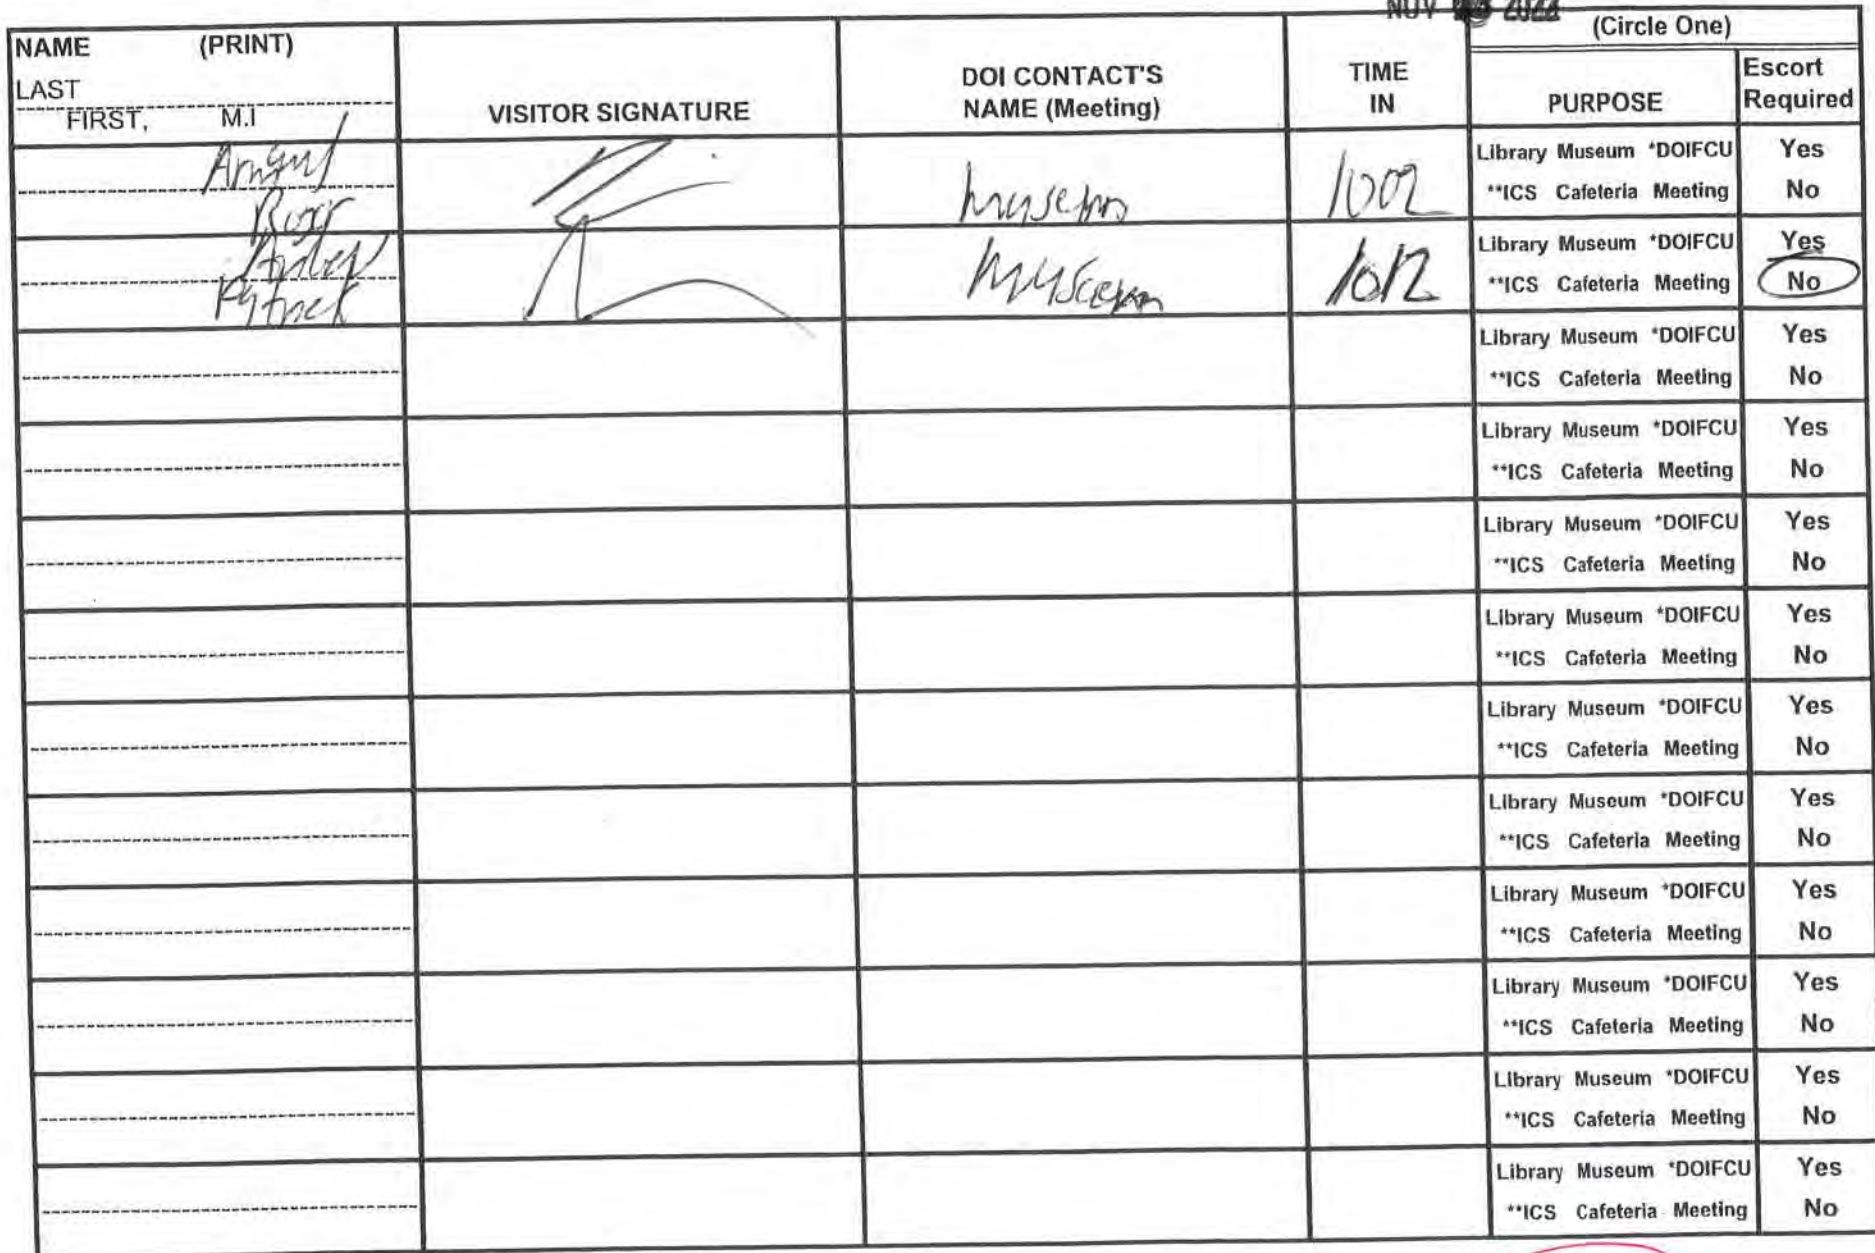 NOV 2022
(Circle One)
NAME (PRINT)
LAST
FIRST, M.I
VISITOR SIGNATURE
DOI CONTACT'S
NAME (Meeting)
TIME
IN
PURPOSE
Escort
Required
1002
Library Museum *DOIFCU Yes
**ICS Cafeteria Meeting No
1012
Library Museum *DOIFCU Yes
**ICS Cafeteria Meeting No
Library Museum *DOIFCU Yes
**ICS Cafeteria Meeting No
Library Museum *DOIFCU Yes
**ICS Cafeteria Meeting No
Library Museum *DOIFCU Yes
**ICS Cafeteria Meeting No
Library Museum *DOIFCU Yes
**ICS Cafeteria Meeting No
Library Museum *DOIFCU Yes
**ICS Cafeteria Meeting No
Library Museum *DOIFCU Yes
**ICS Cafeteria Meeting No
Library Museum *DOIFCU Yes
**ICS Cafeteria Meeting No
Library Museum *DOIFCU Yes
**ICS Cafeteria Meeting No
Library Museum *DOIFCU Yes
**ICS Cafeteria Meeting No
Library Museum *DOIFCU Yes
**ICS Cafeteria Meeting No